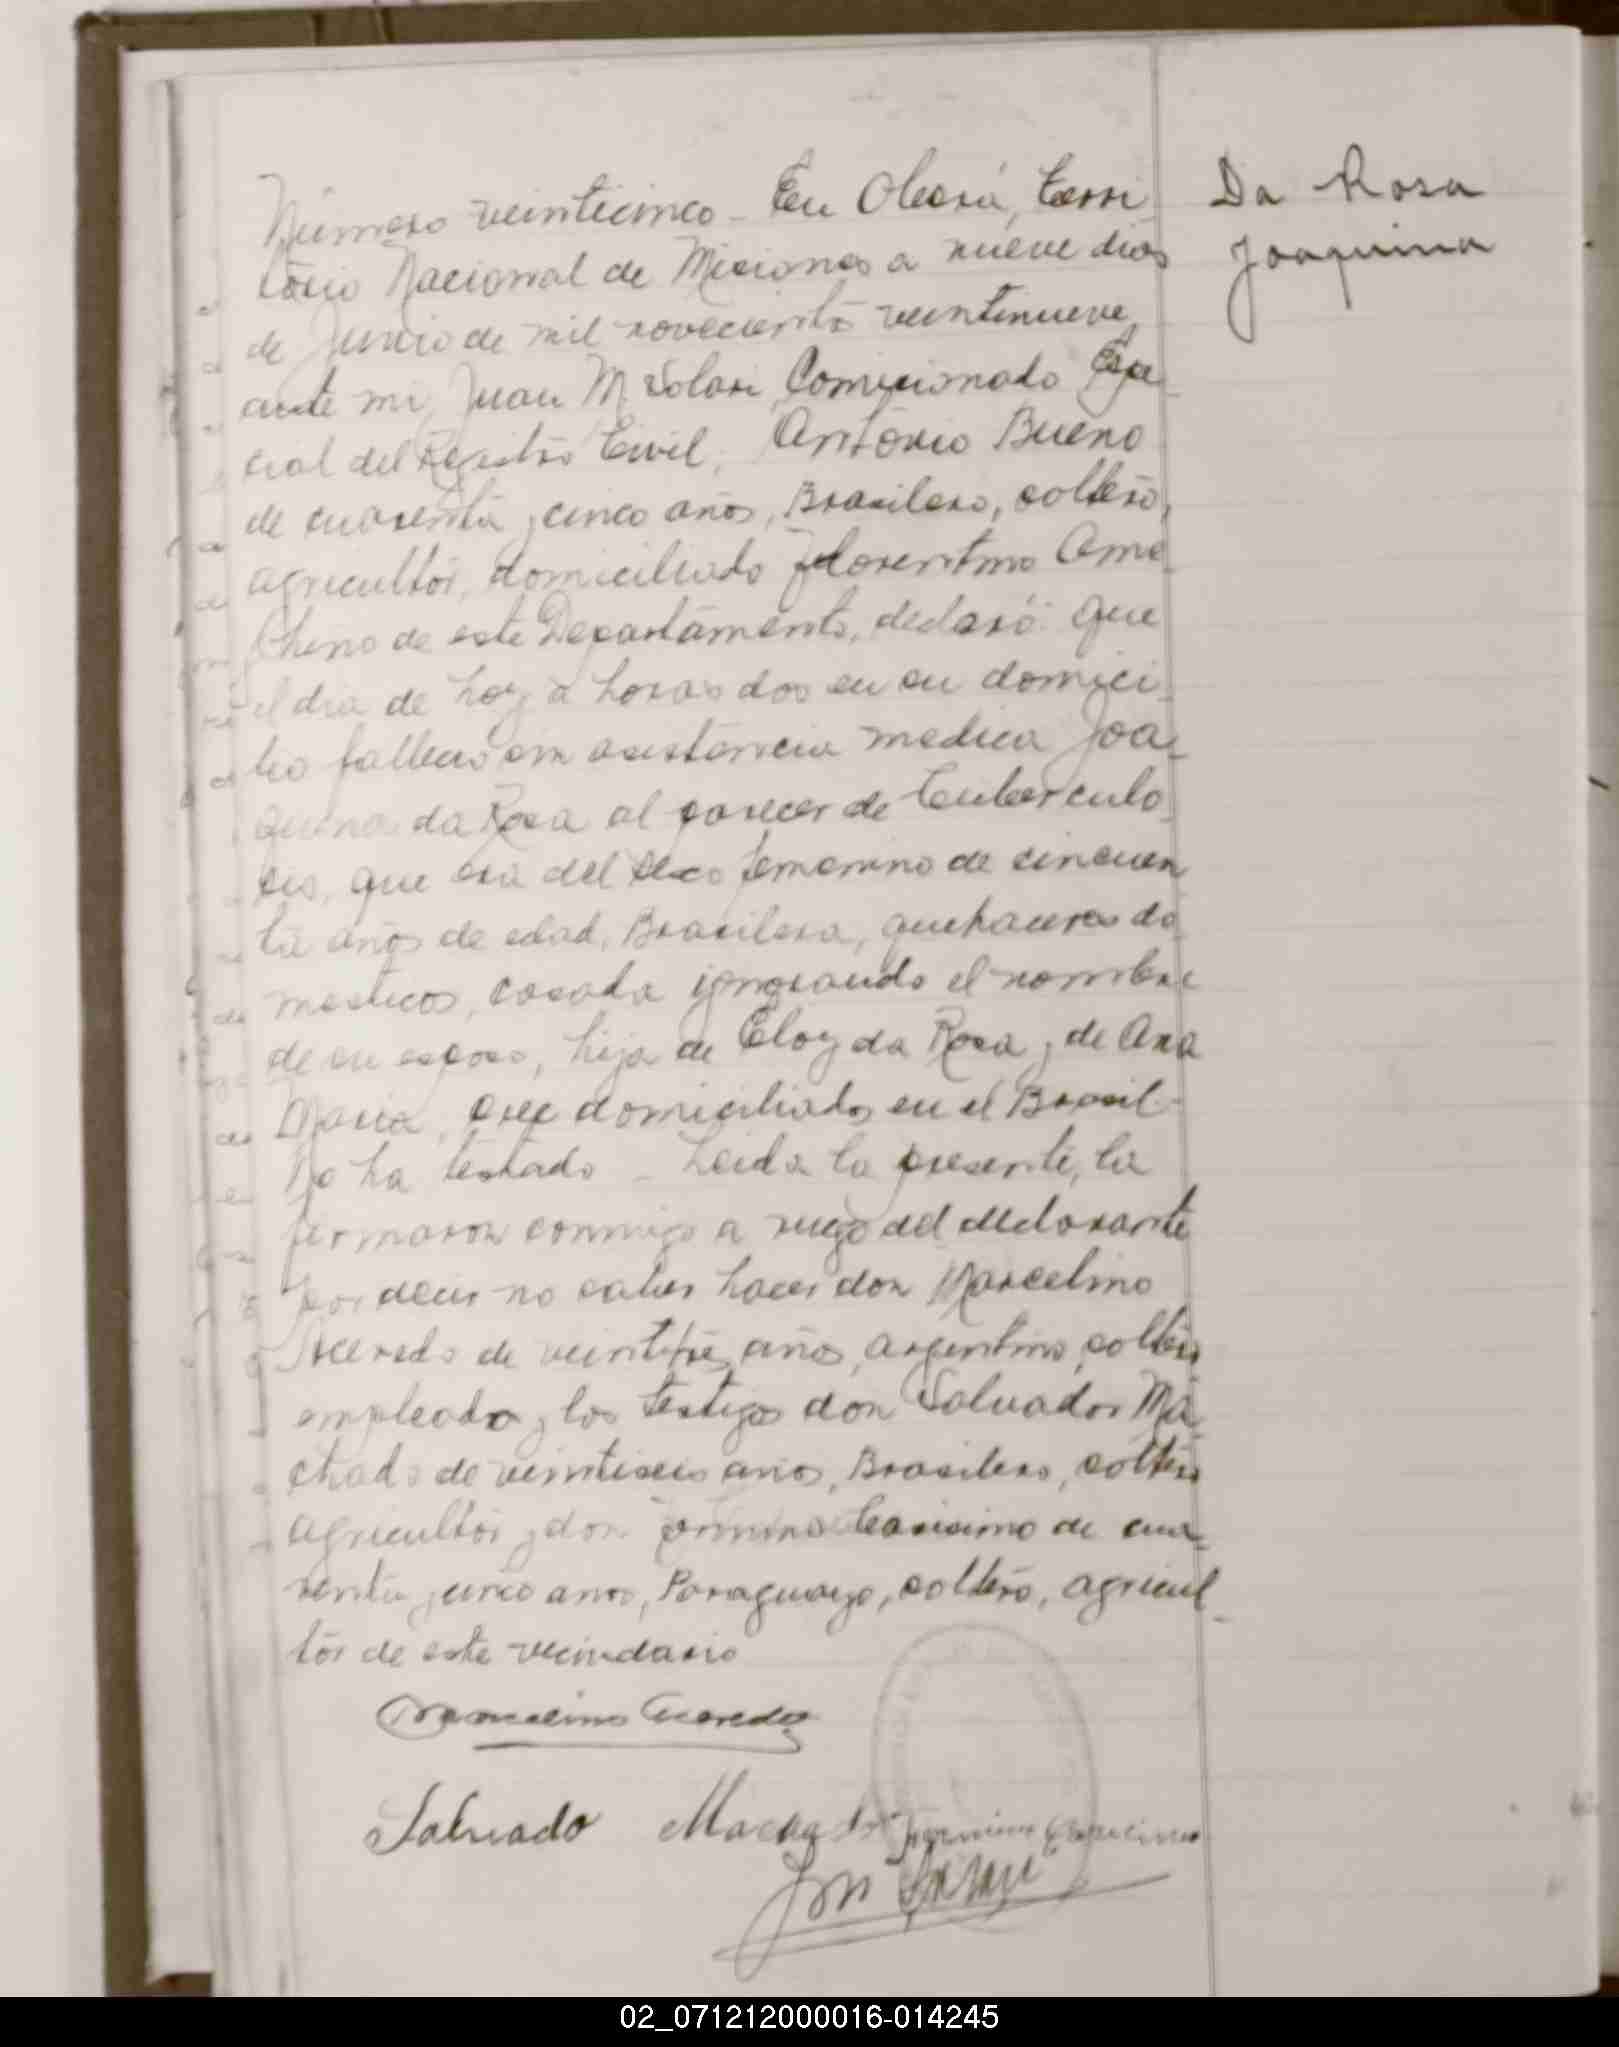 Número veinticinco - En Oberá, Terri
torio Nacional de Misiones a nueve dias
de Junio de mil novecientos veintinueve,
ante mi, Juan M. Solari, Comisionado Espe
cial del Registro Civil, Antonio Bueno
de cuarenta y cinco años, Brasilero, soltero,
agricultor, domiciliado Florentino Ame
ghino de este Departamento, declaró: que
el dia de hoy a horas dos en su domici
lio fallecio sin asistencia medica Joa
quina da Rosa al parecer de Tuberculo
sis, que era del sexo femenino de cincuen
ta años de edad, Brasilera, quehaceres do
mesticos, casada ignorando el nombre
de su esposo, hija de Eloy da Rosa y de Ana
Maria, domiciliados en el Brasil -
No ha testado - Leida la presente, la
firmaron conmigo a ruego del declarante
por decir no saber hacer don Marcelino
Acevedo de veintitres años, argentino, soltero
empleado y los testigos don Salvador Ma
chado de veintiseis años, Brasilero, soltero
agricultor y don de cua
renta y cinco años, Paraguayo, soltero, agricul
tor de este vecindario
Da Rosa
Joaquina
Marcelino Acevedo
Salvado Machado
02_071212000016-014245